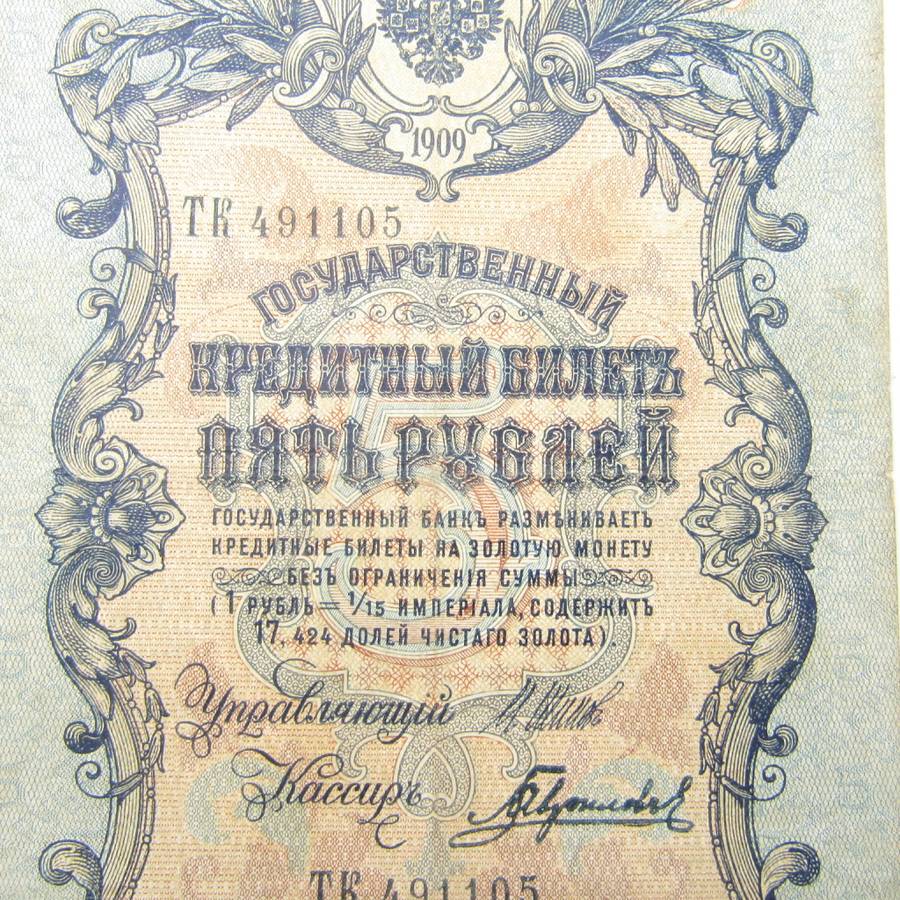 1909
ТК 491105
ГОСУДАРСТВЕННЫЙ
КРЕДИТНЫЙ БИЛЕТЪ
ПЯТЬ РУБЛЕЙ
5
ГОСУДАРСТВЕННЫЙ БАНКЪ РАЗМѢНИВАЕТЪ
КРЕДИТНЫЕ БИЛЕТЫ НА ЗОЛОТУЮ МОНЕТУ
БЕЗЪ ОГРАНИЧЕНІЯ СУММЫ
(1 РУБЛЬ = 1/15 ИМПЕРІАЛА, СОДЕРЖИТЪ
17,424 ДОЛЕЙ ЧИСТАГО ЗОЛОТА).
Управляющій
Кассиръ
ТК 491105